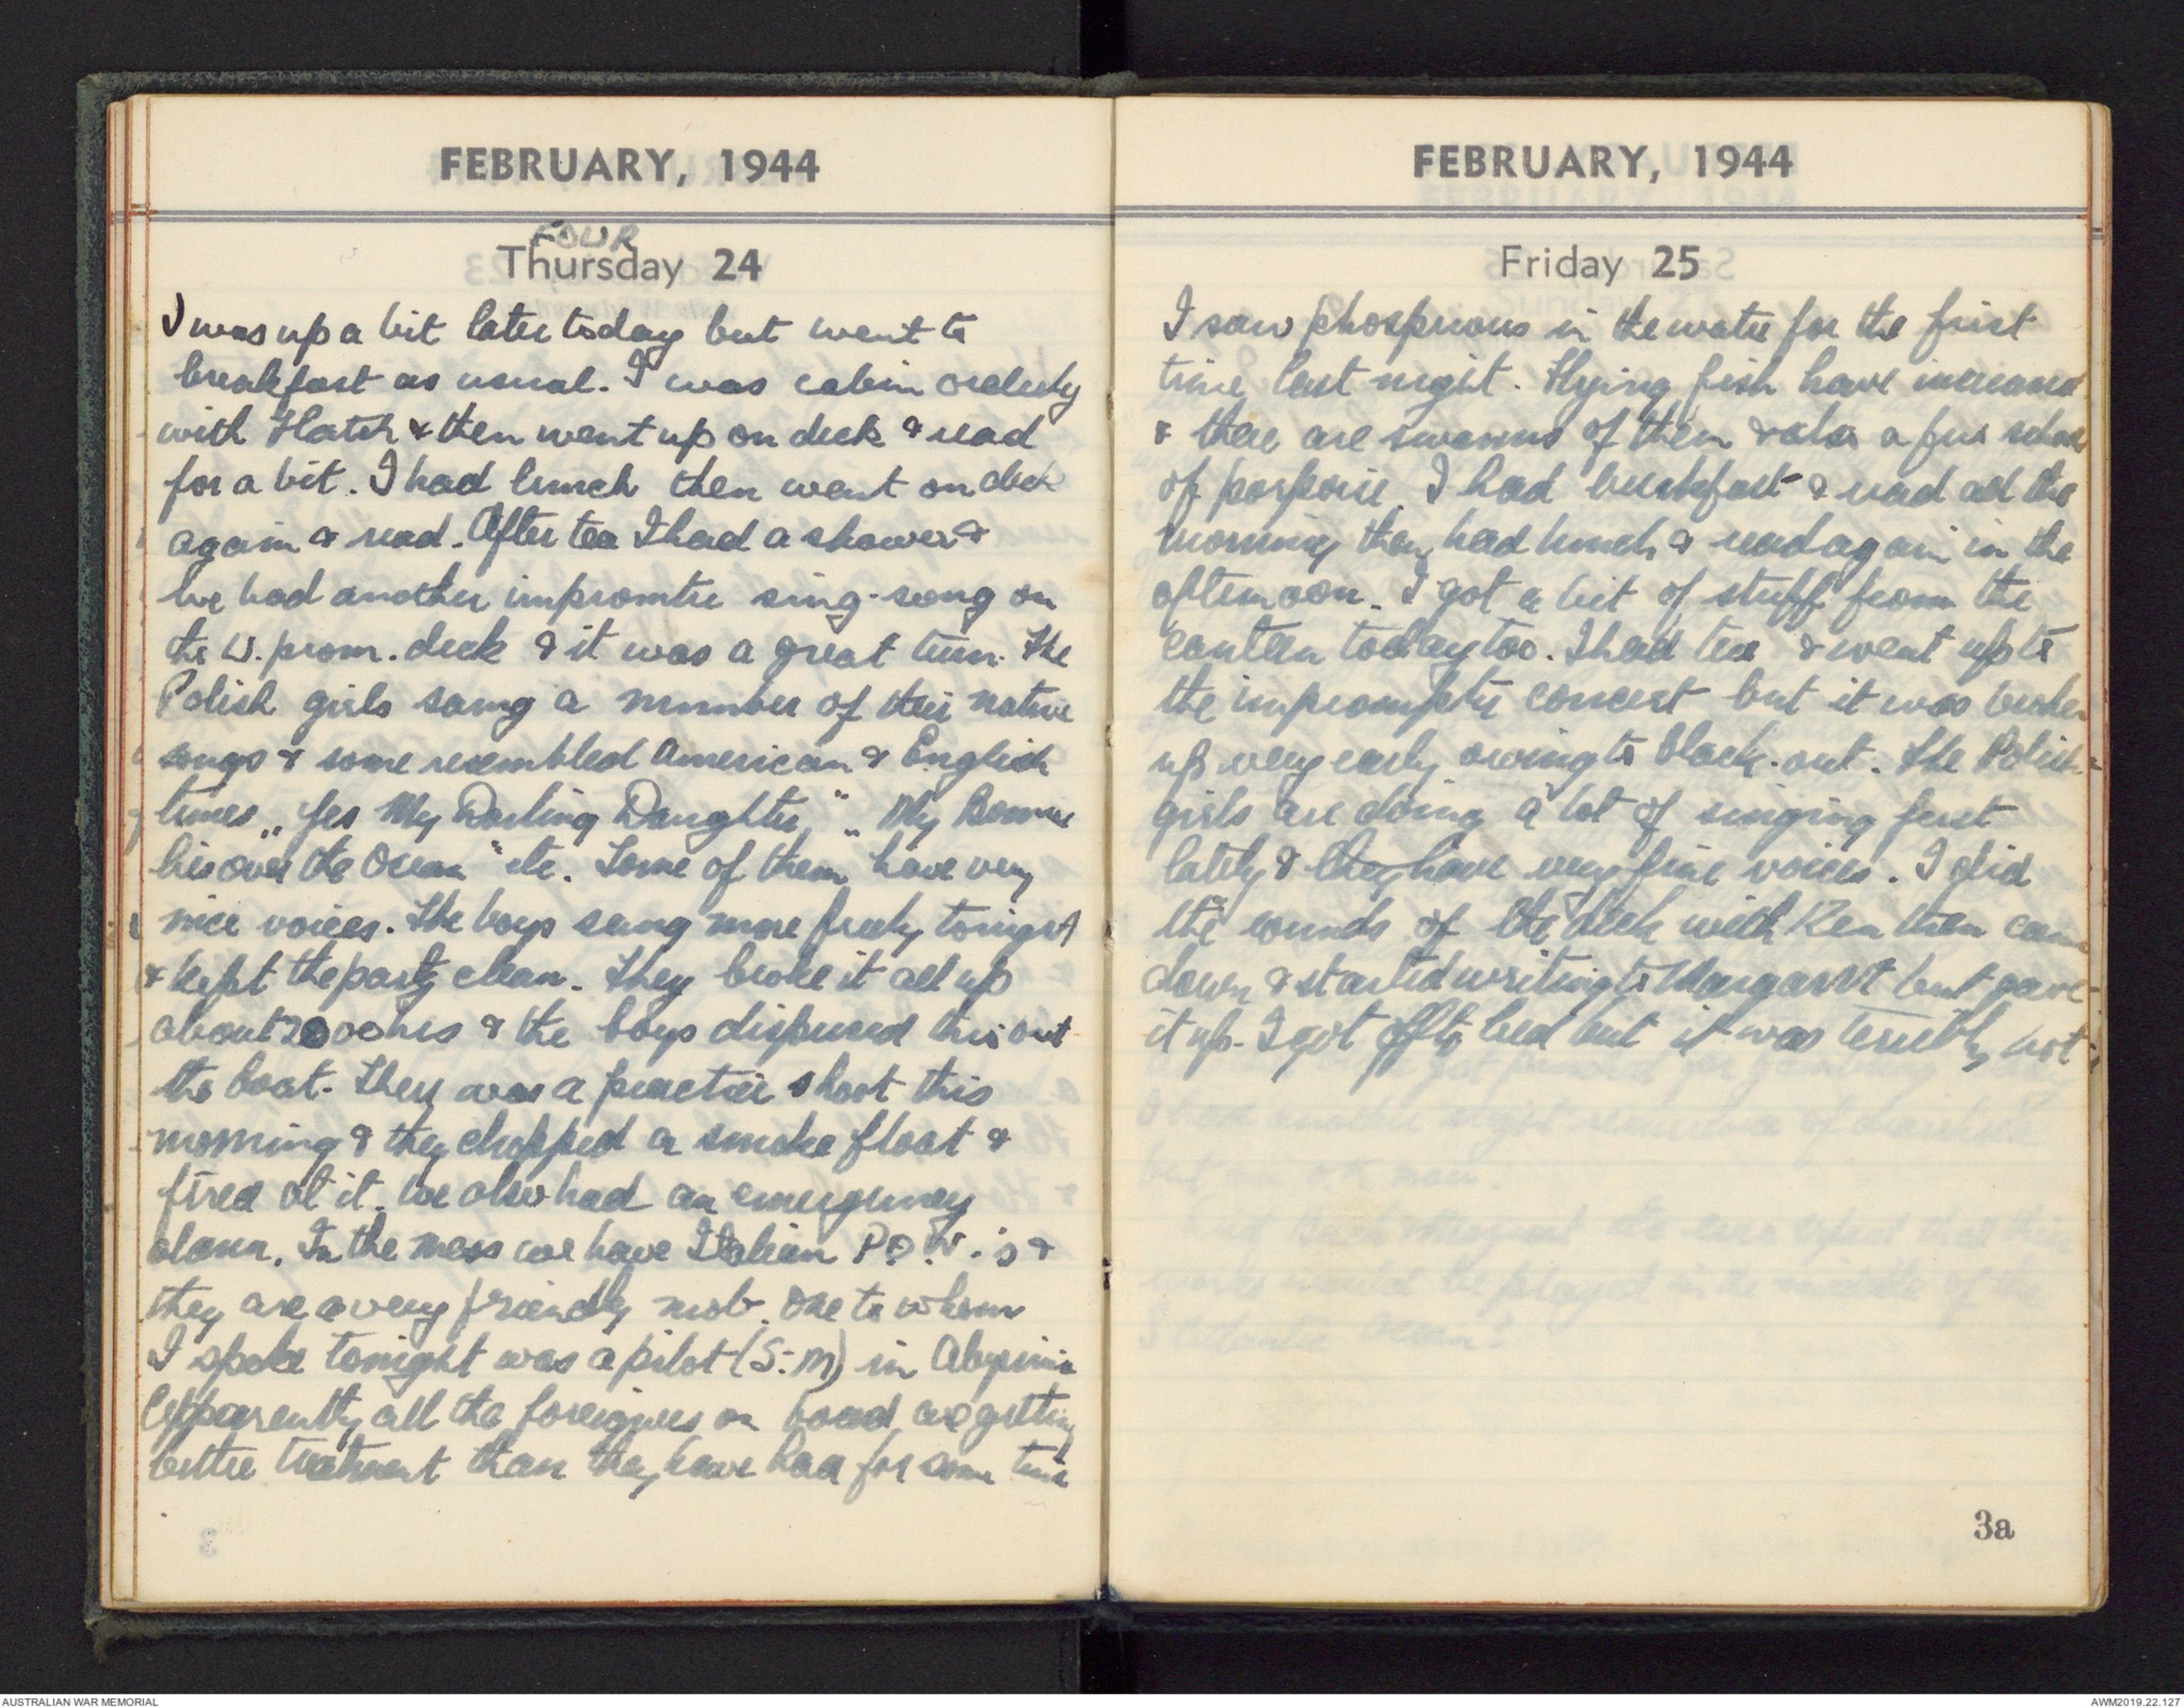 FEBRUARY, 1944
FOUR
Thursday 24
I was up a bit later today but went to
breakfast as usual. I was cabin orderly
with Hatch & then went up on deck & read
for a bit. I had lunch then went on deck
again & read. After tea I had a shower &
we had another impromtu sing-song on
the W. prom. deck & it was a great turn. The
Polish girls sang a number of their native
songs & some resembled American & English
tunes „ Yes My Darling Daughter," „ My Bonnie
lies over the Ocean" etc. Some of them have very
nice voices. The boys sang more freely tonight
& kept the party clean. They broke it all up
about 2000hrs & the boys dispersed thru out
the boat. They was a practice shoot this
morning & they chopped a smoke float &
fired at it. We also had an emergency
alarm. In the mess we have Italian P.O.W.'s &
they are a very friendly mob. One to whom
I spoke tonight was a pilot (S.M) in Abyssinia
Apparently all the foreigners on board are getting
better treatment than they have had for some time
FEBRUARY, 1944
Friday 25
I saw phosprous in the water for the first
time last night. Flying fish have increased
& there are swarms of them & also a few schools
of porpoise. I had breakfast & read all the
morning then had lunch & read again in the
afternoon. I got a bit of stuff from the
canteen today too. I had tea & went up to
the impromptu concert but it was broken
up very early owing to black-out. The Polish
girls are doing a lot of singing just
lately & they have very fine voices. I did
the rounds of the deck with Ken then came
down & started writing to Margaret but gave
it up. I got off to bed but it was terribly hot
3a
AUSTRALIAN WAR MEMORIAL
AWM2019.22.127